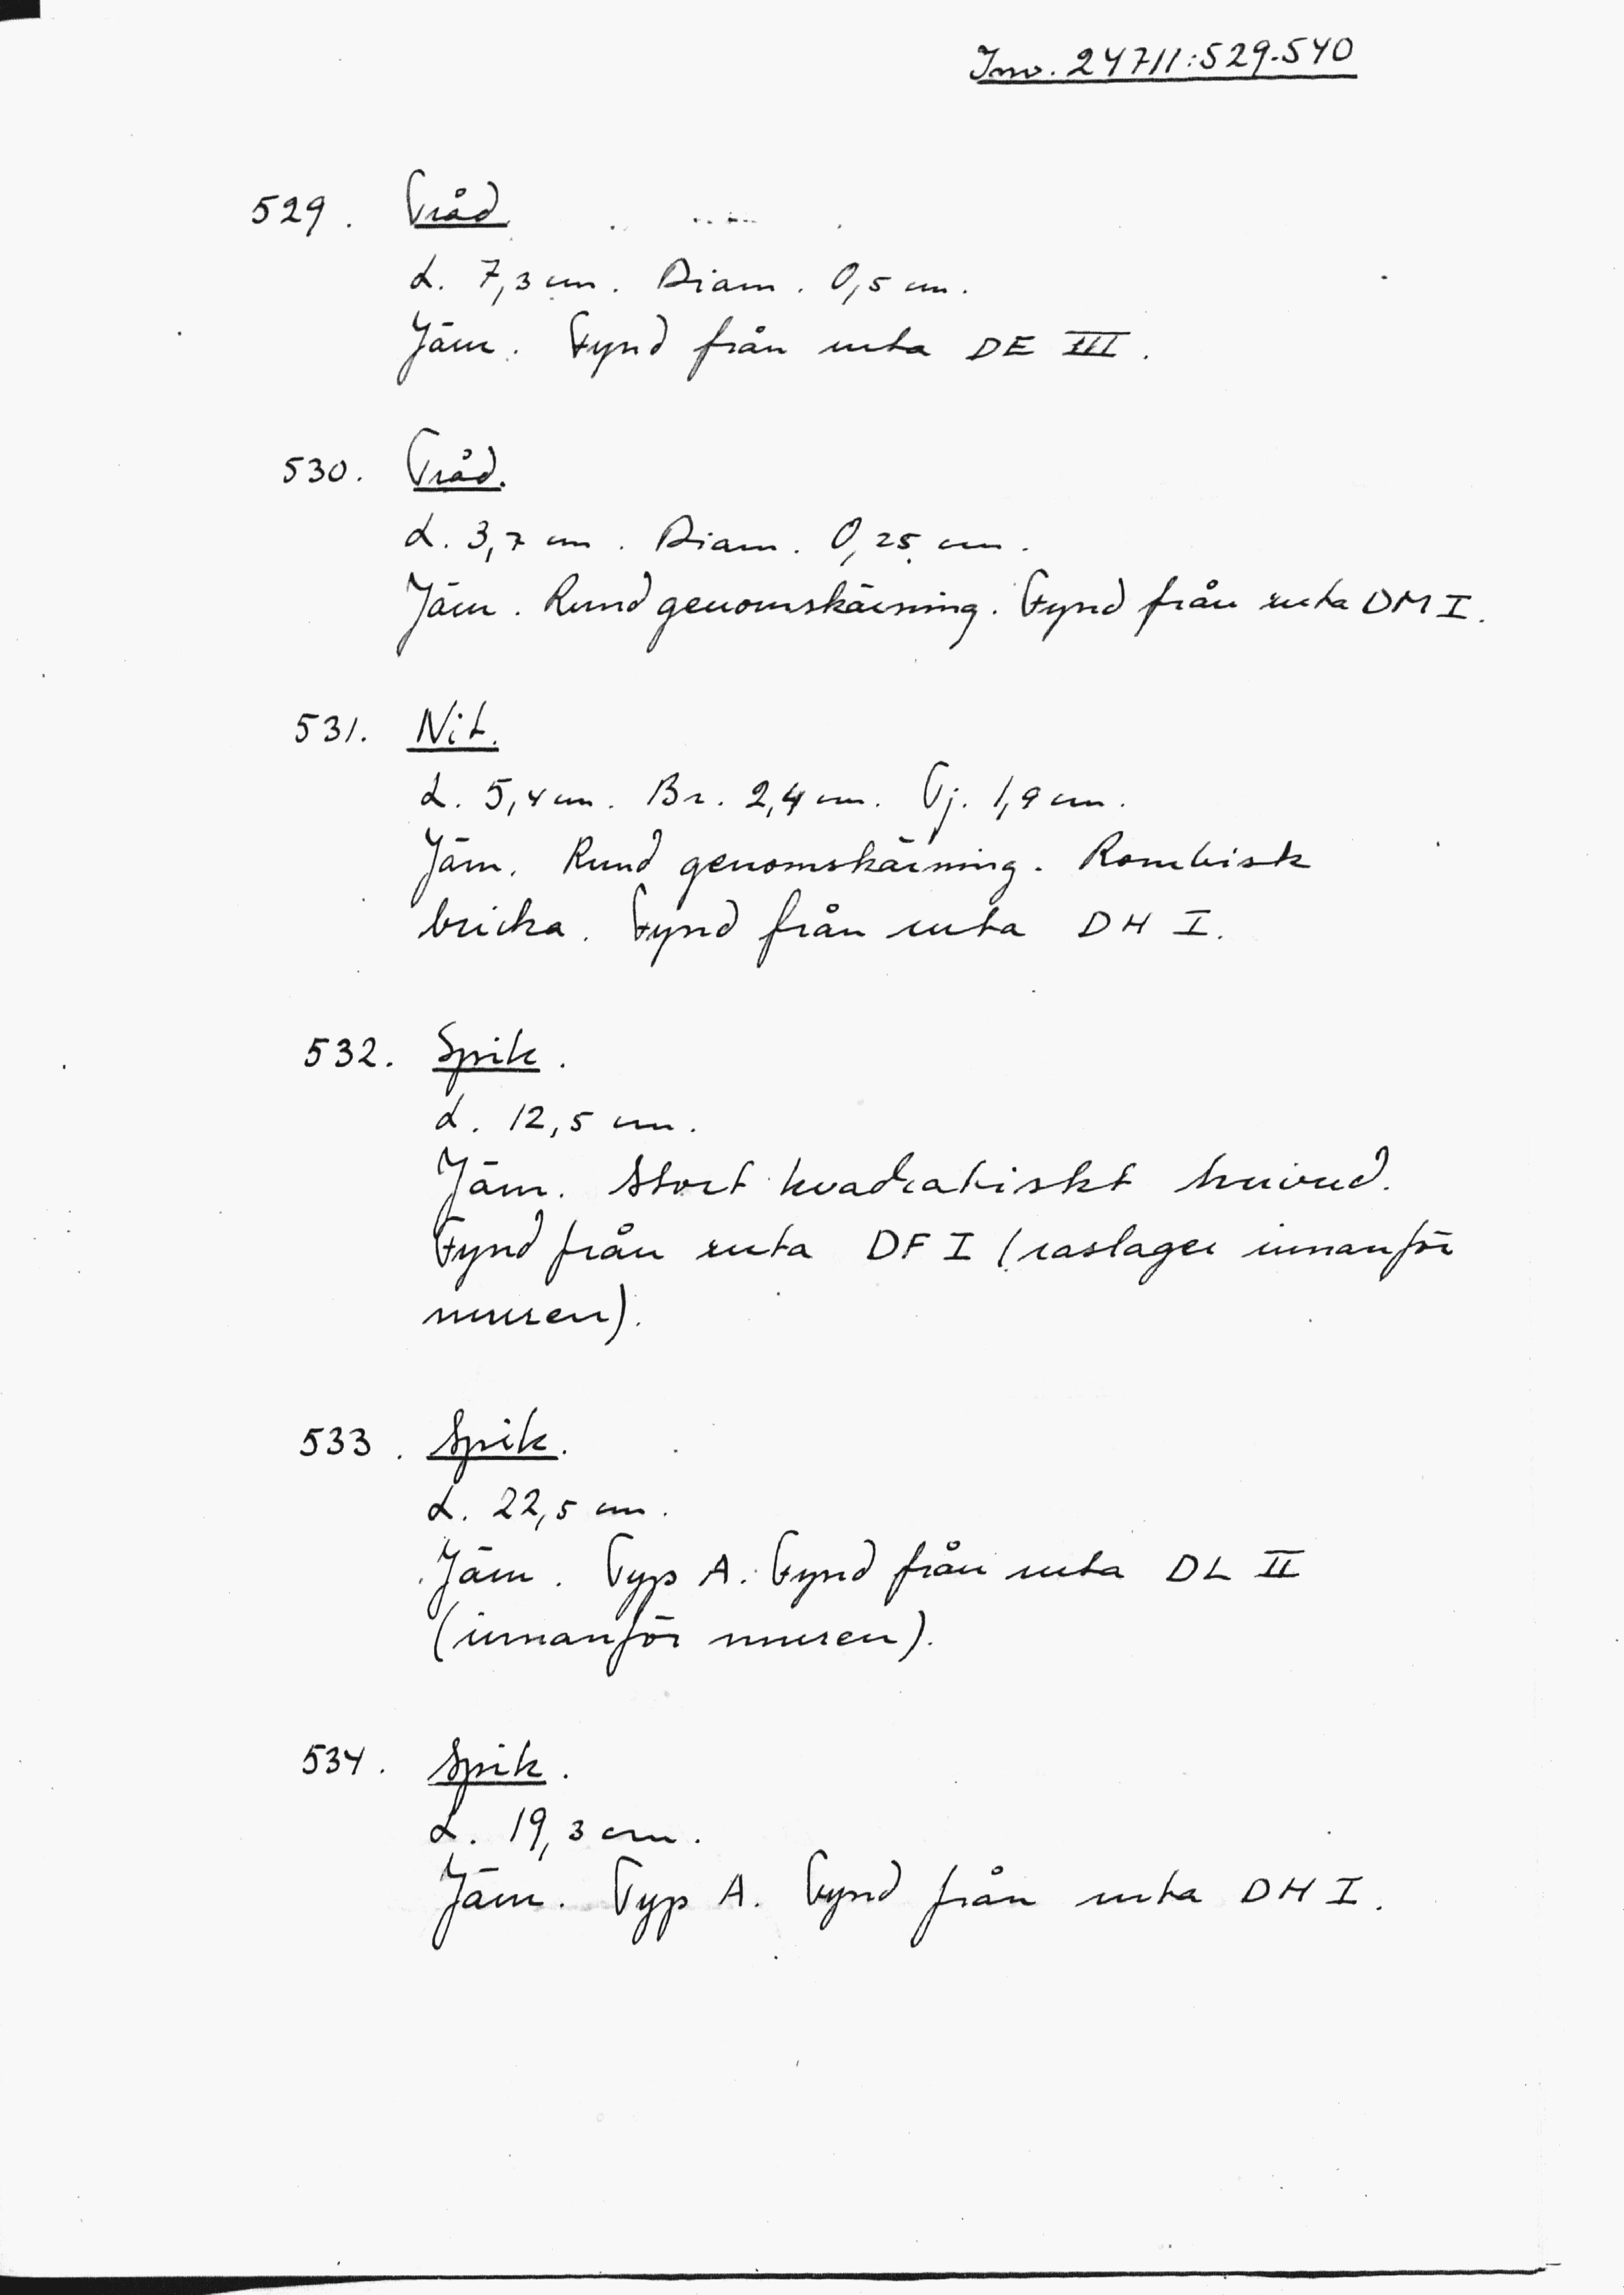 Inv. 24711:529-540
529. Tråd
L. 7,3 cm. Diam. 0,5 cm.
Järn. Fynd från ruta DE III.
530. Tråd.
L. 3,7 cm. Diam. 0,25 cm.
Järn. Rund genomskärning. Fynd från ruta DM I.
531. Nit.
L. 5,4 cm. Br. 2,4 cm. Tj. 1,9 cm.
Järn. Rund genomskärning. Rombisk
bricka. Fynd från ruta DH I.
532. Spik.
L. 12,5 cm.
Järn. Stort kvadratiskt huvud.
Fynd från ruta DF I (raslager innanför
muren).
533. Spik.
L. 22,5 cm.
Järn. Typ A. Fynd från ruta DL II
(innanför muren).
534. Spik.
L. 19,3 cm.
Järn. Typ A. Fynd från ruta DH I.